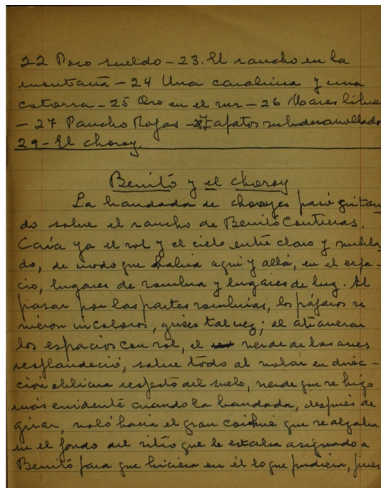 22 Poco sueldo - 23. El rancho en la
montaña - 24 Una carabina y una
cotorra - 25 Oro en el sur - 26 Mares libres
- 27 Pancho Rojas - 28 Zapatos subdesarrollados
29 - El choroy.
Benito y el choroy
La bandada de choroyes pasó gritan-
do sobre el rancho de Benito Contreras.
Caía ya el sol y el cielo entre claro y nubla-
do, de modo que había aquí y allá, en el espa-
cio, lugares de sombra y lugares de luz. Al
pasar por las partes sombrías, los pájaros se
vieron incoloros, grises tal vez; al atravesar
los espacios con sol, el verde de las aves
resplandeció, sobre todo al volar en direc-
ción oblicua respecto del suelo, verde que se hizo
más evidente cuando la bandada, después de
girar, voló hacia el gran coihue que se alzaba
en el fondo del sitio que le estaba asignado a
Benito para que hiciera en él lo que pudiera, pues